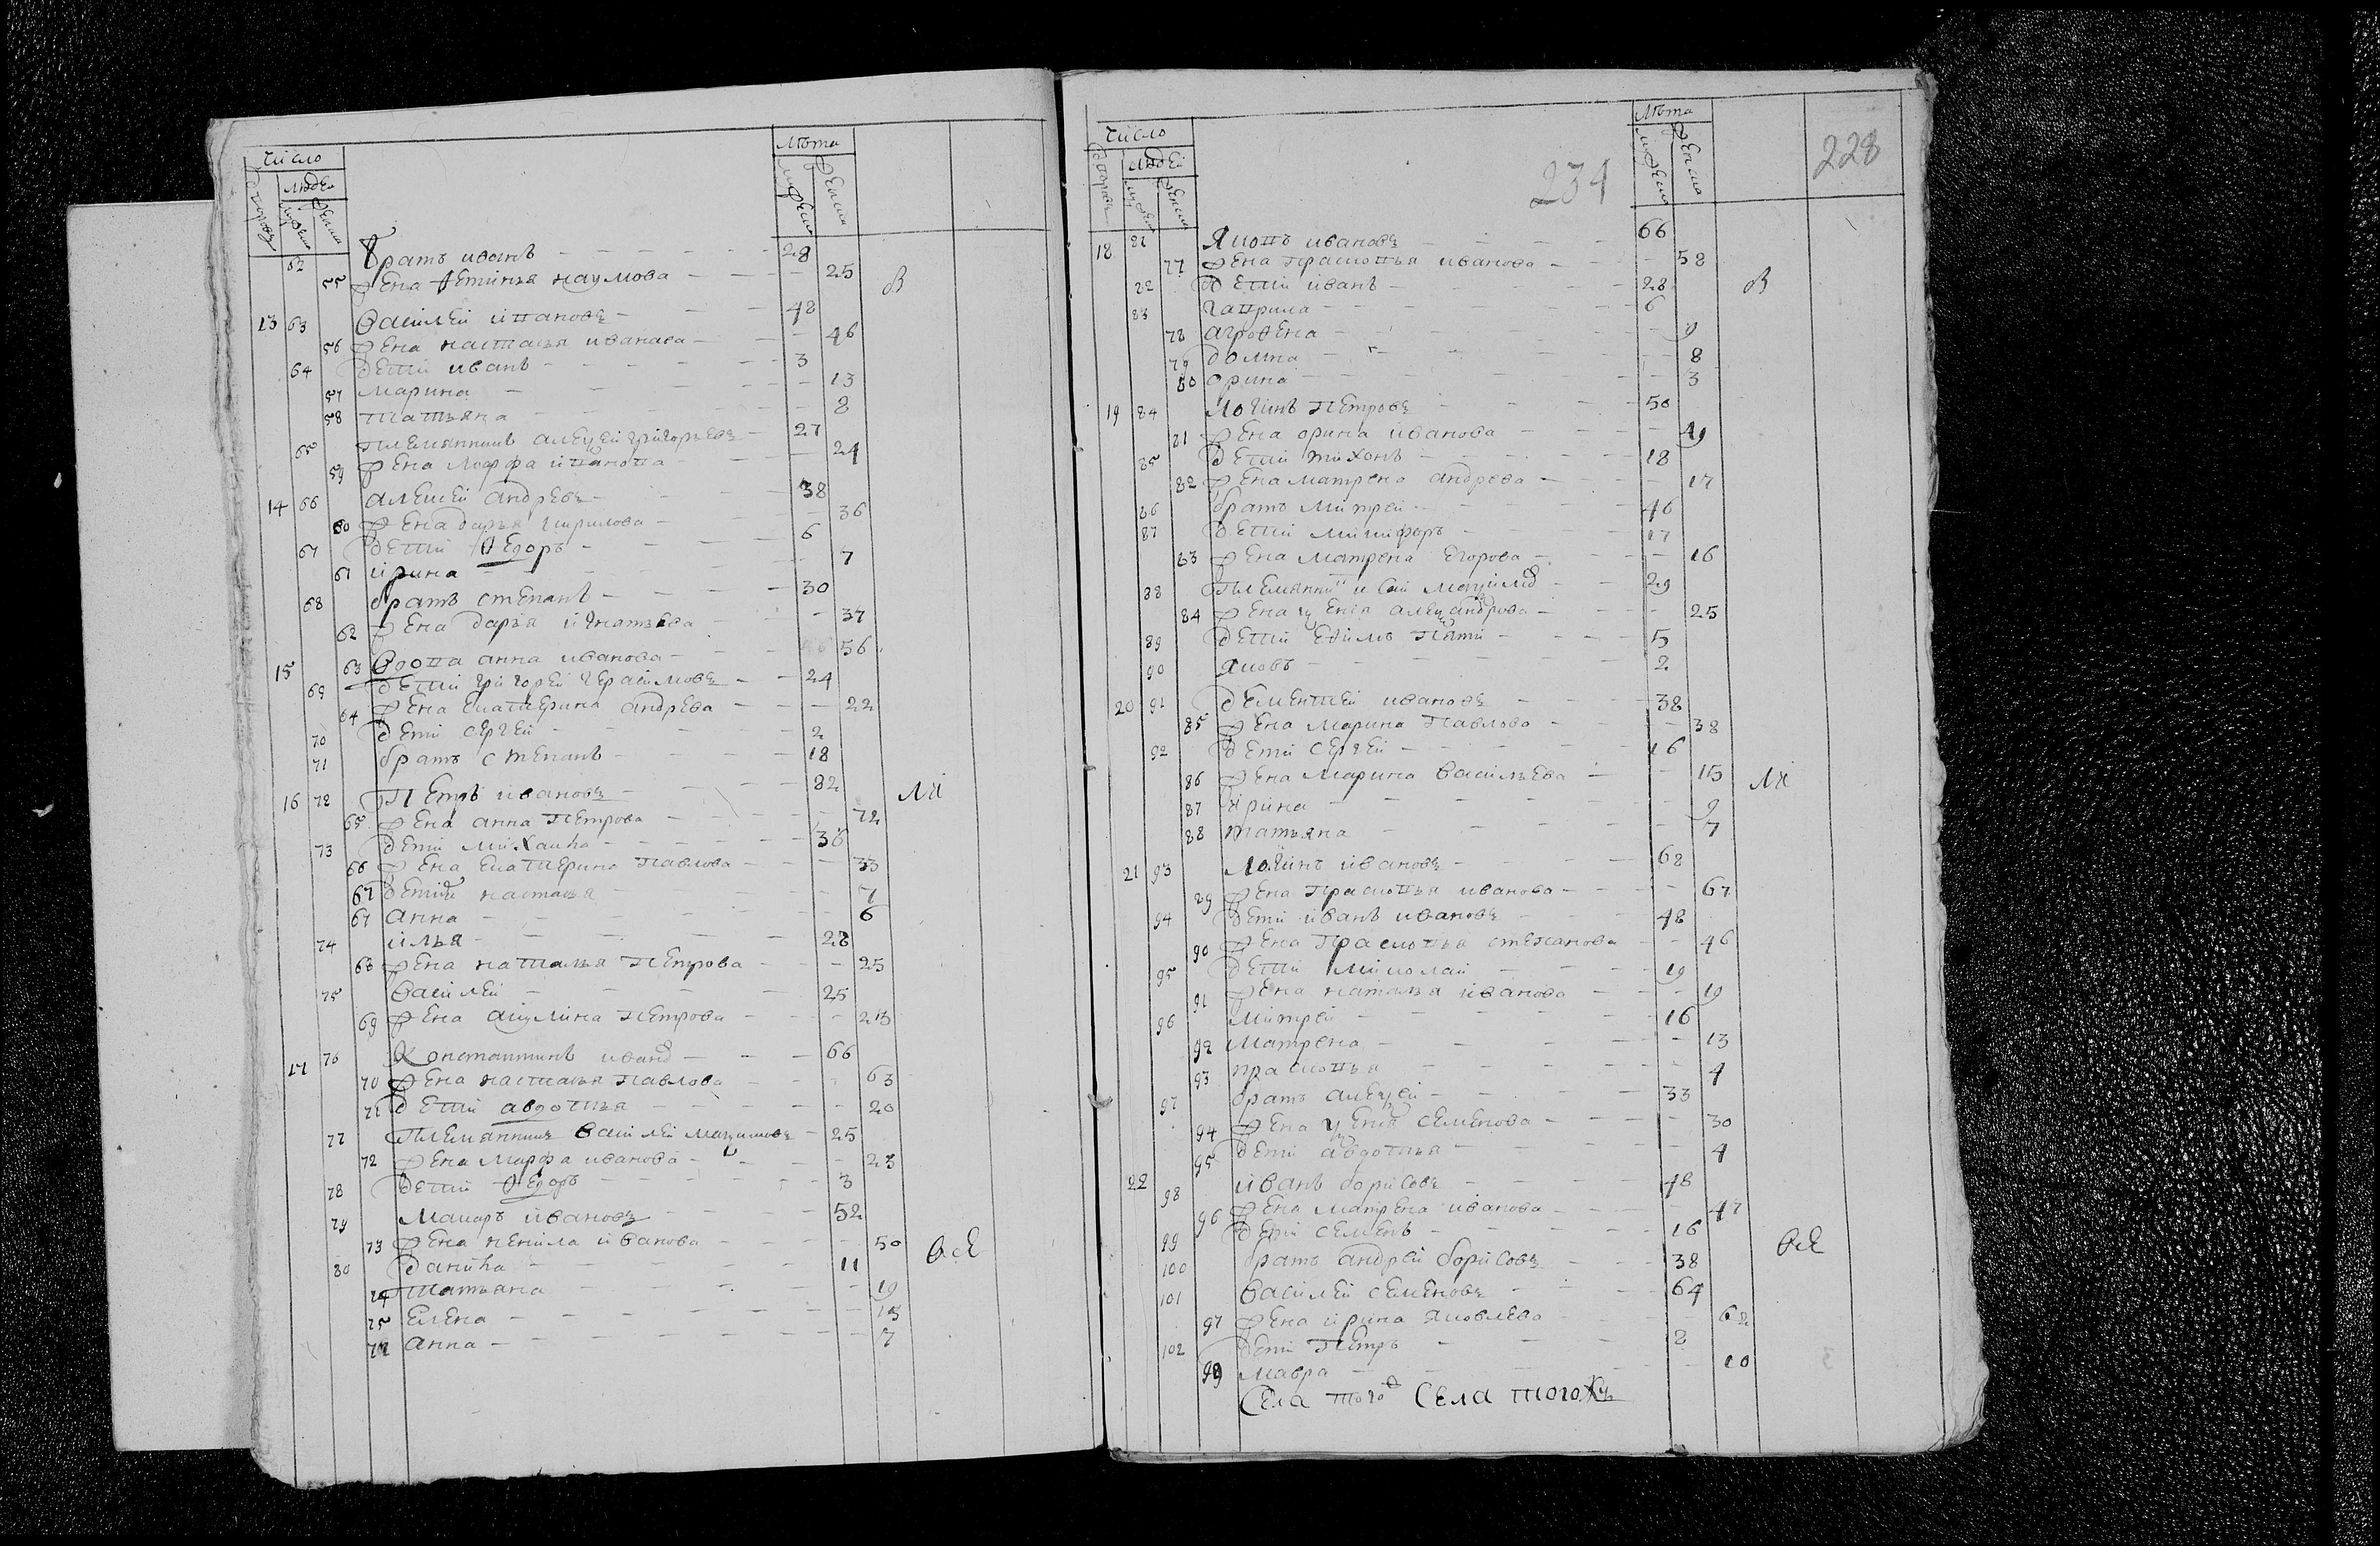 Число
Лѣта
людей
дворовъ
мужеска
женска
мужеска
женска
62 братъ иванъ 28
55 жена фетинья наумова 25
В
13 63 василей ивановъ 48
56 жена настасья иванава 46
64 дети иванъ 3
57 марина 13
58 татьяна 8
65 племянникъ алеѯей григорьевъ 27
59 жена марфа иванова 24
14 66 алексей андревъ 38
60 жена дарья кирилова 36
67 дети Ѳедоръ 6
61 ирина 7
68 братъ степанъ 30
62 жена дарья игнатьева 37
15 63 вдова анна иванова 56
69 дети григорей герасимовъ 24
64 жена екатерина андрева 22
70 дети сергей 2
71 братъ степанъ 18
16 72 Петръ ивановъ 82
МИ
65 жена анна Петрова 72
73 дети михаила 36
66 жена екатерина павлова 33
67 дети настасья 7
67 анна 6
74 илья 28
68 жена наталья Петрова 25
75 василей 25
69 жена акулина петрова 23
17 76 Константинъ иванов 66
70 жена настасья павлова 63
71 дети авдотья 20
77 Племянникъ василей маѯимовъ 25
72 жена марфа иванова 23
78 дети Ѳедоръ 3
79 Макаръ ивановъ 52
73 жена ненила иванова 50
ВсЕ
80 данила 11
74 татьяна 19
75 елена 15
77 анна 7
Число
Лѣта
людей
дворовъ
мужеска
женска
мужеска
женска
234
228
18 81 Яковъ ивановъ 66
77 жена прасковья иванова 58
82 дети иванъ 28
В
83 гаврила 6
78 агрофена 9
79 домна 8
80 орина 3
19 84 Логинъ петровъ 50
81 жена орина иванова 49
85 дети тихонъ 18
82 жена матрена андрева 17
86 братъ митрей 46
87 дети никифоръ 17
83 жена матрена егорова 16
88 29
84 25
89 дети 5
90 яковъ 2
20 91 дементей ивановъ 38
85 жена марина павлова 38
92 дети сергей 16
86 жена марина васильева 15
МИ
87 ирина 9
88 татьяна 7
21 93 Логинъ ивановъ 68
89 жена прасковья иванова 67
94 дети иванъ ивановъ 48
90 жена прасковья степанова 46
95 дети николай 19
91 жена наталья иванова 19
96 митрей 16
92 матрена 13
93 прасковья 4
97 братъ алеѯей 33
94 жена ѯенья семенова 30
95 дети авдотья 4
22 98 иванъ борисовъ 48
96 жена матрена иванова 47
99 дети семенъ 16
ВсЕ
100 братъ андрей борисовъ 38
101 василей семеновъ 64
97 жена ирина яковлева 62
102 дети Петръ 8
99 мавра 10
Села того Села тогожъ